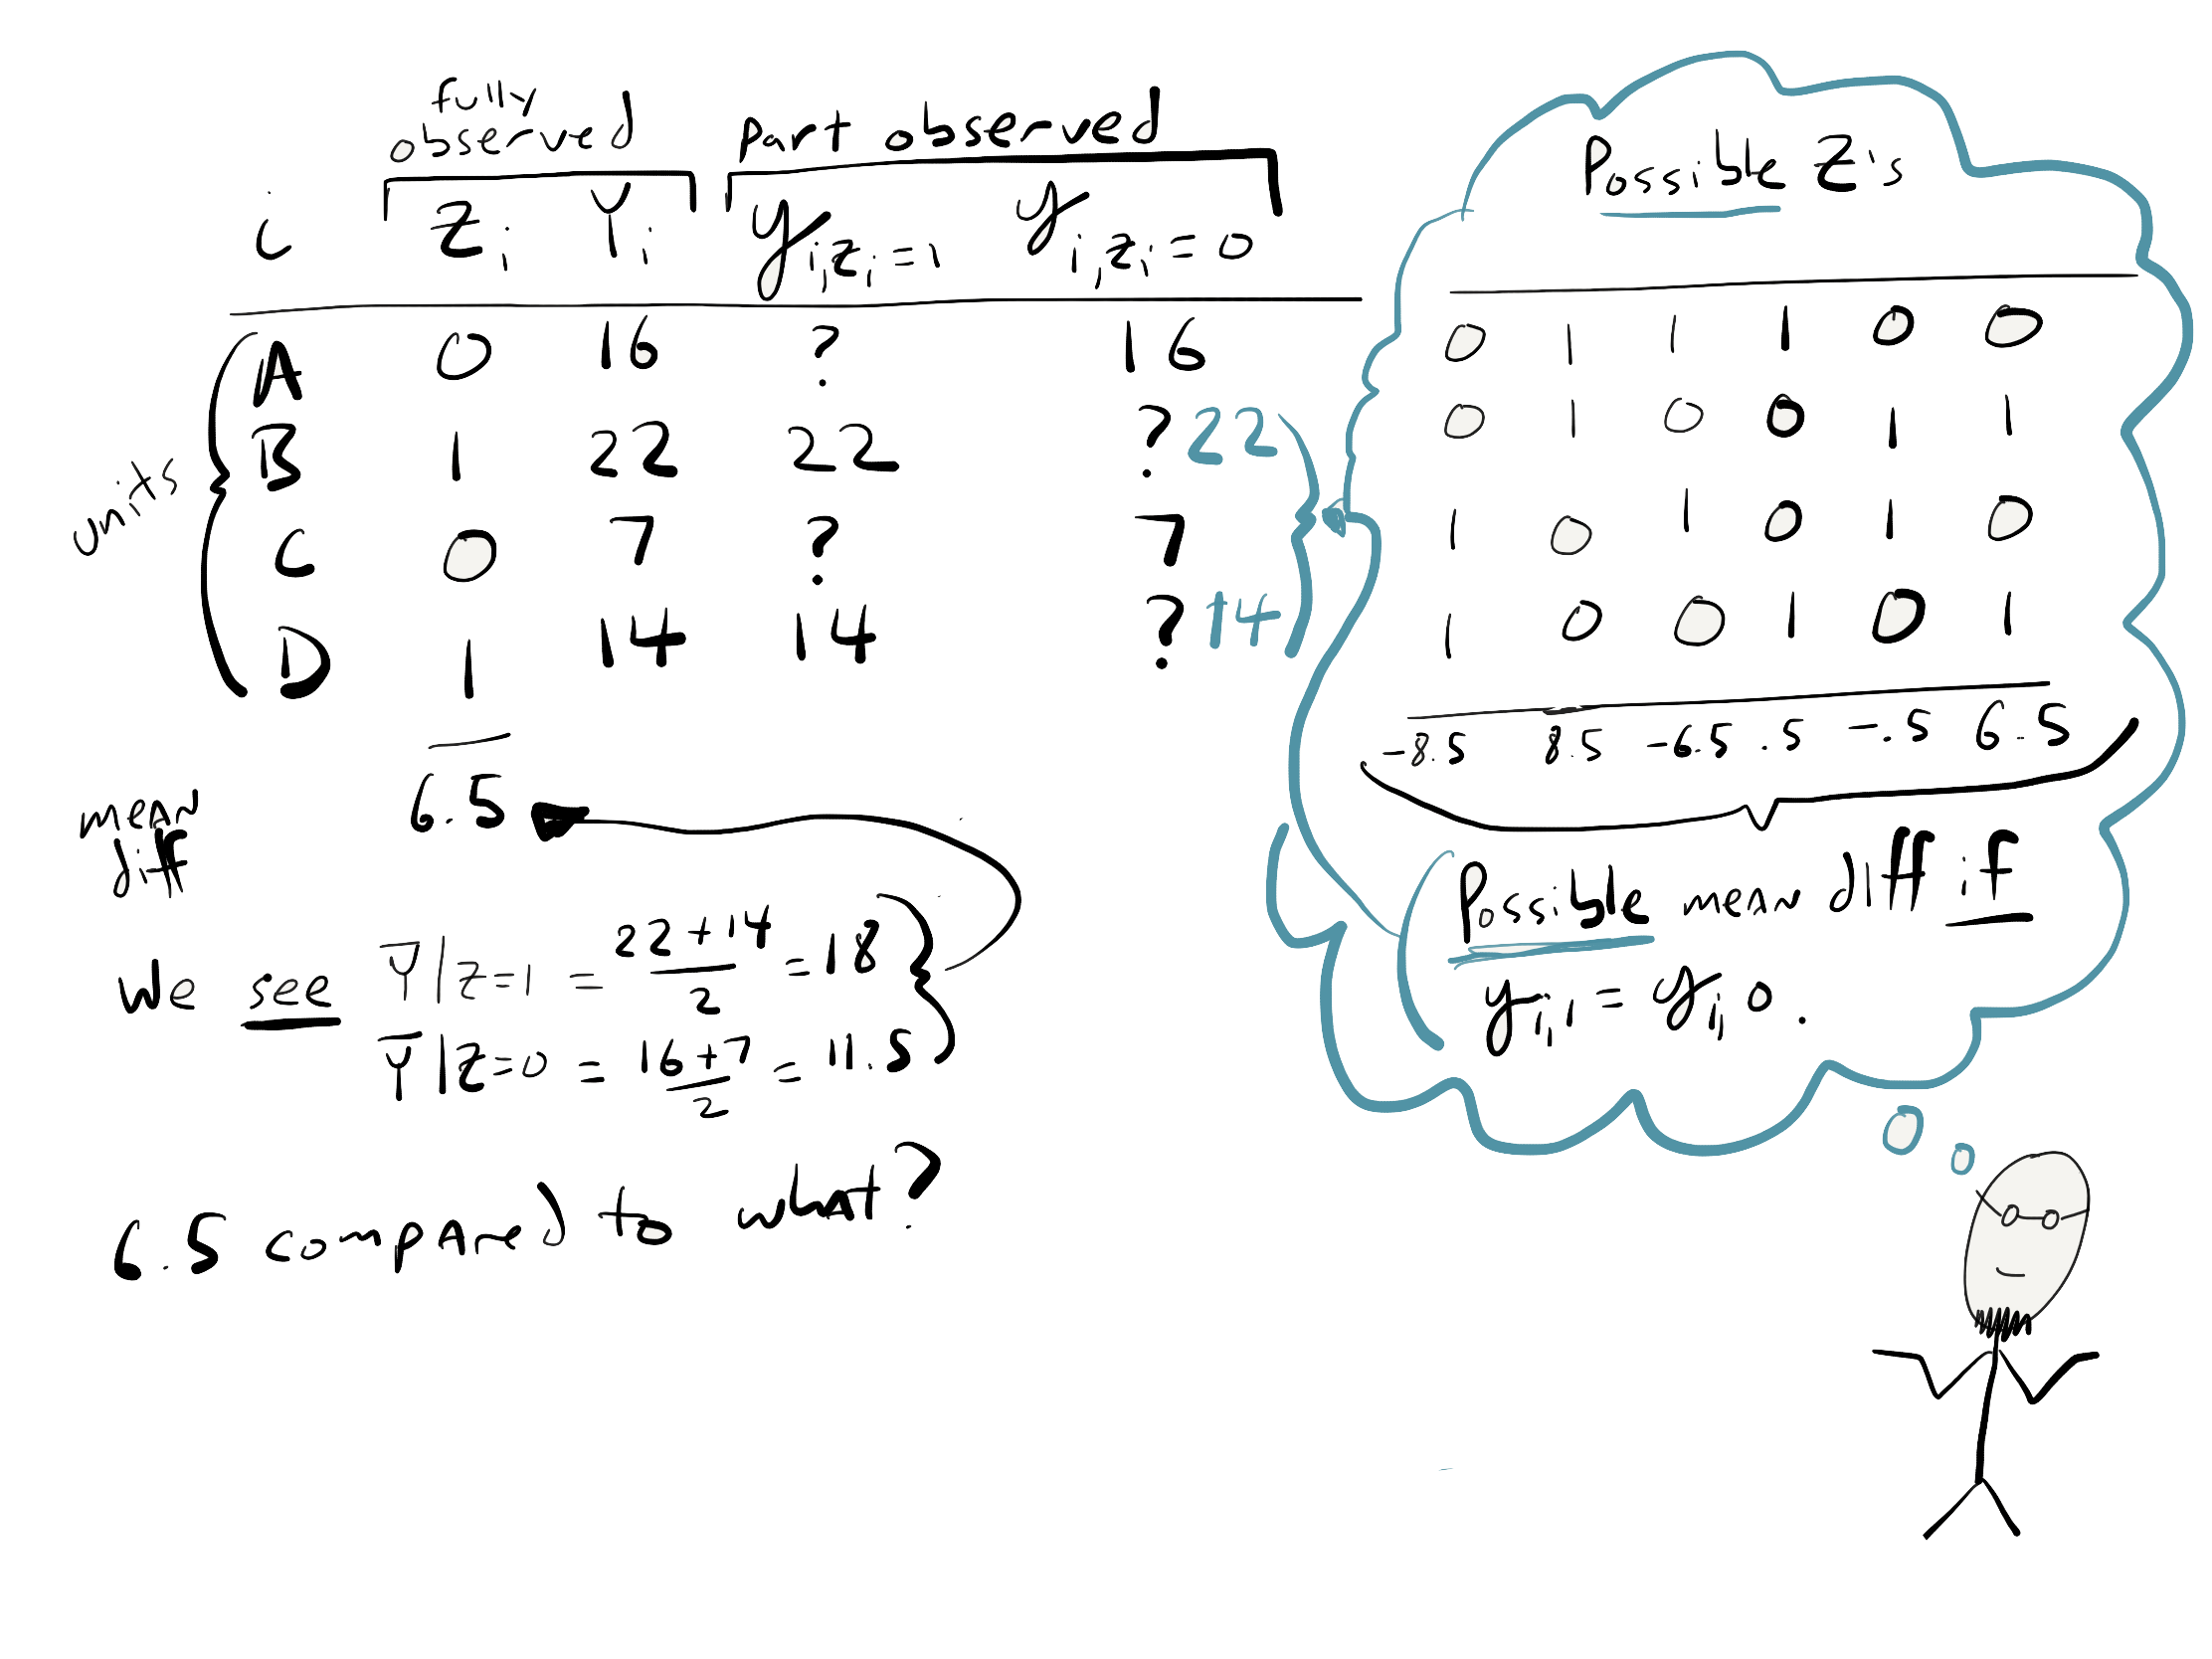 fully
observed
part observed
i Zi Yi yi,zi=1 yi,zi=0
units
A 0 16 ? 16
B 1 22 22 ? 22
C 0 7 ? 7
D 1 14 14 ? 14
6.5
mean
diff
We see Ȳ|Z=1 = 22+14/2 = 18
Ȳ|Z=0 = 16+7/2 = 11.5
6.5 compared to what?
Possible Z's
0 1 1 1 0 0
0 1 0 0 1 1
1 0 1 0 1 0
1 0 0 1 0 1
-8.5 8.5 -6.5 .5 -.5 6.5
Possible mean diff if
yi,1 = yi,0.